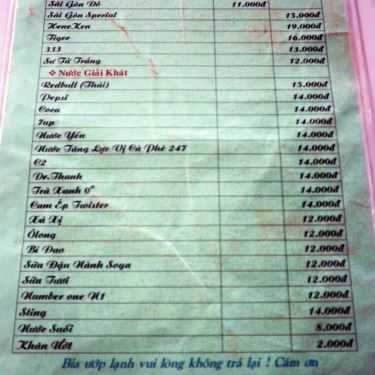 Sài Gòn Đỏ 11.000đ
Sài Gòn Special 15.000đ
HeneKen 19.000đ
Tiger 16.000đ
333 13.000đ
Sư Tử Trắng 12.000đ
❖ Nước Giải Khát
Redbull (Thái) 15.000đ
Pepsi 14.000đ
Coca 14.000đ
7up 14.000đ
Nước Yến 14.000đ
Nước Tăng Lực Vị Cà Phê 247 14.000đ
C2 14.000đ
Dr.Thanh 14.000đ
Trà Xanh 0° 14.000đ
Cam Ép Twister 14.000đ
Xá Xị 12.000đ
Ôlong 12.000đ
Bí Đao 12.000đ
Sữa Đậu Nành Soya 12.000đ
Sữa Tươi 12.000đ
Number one N1 12.000đ
Sting 14.000đ
Nước Suối 8.000đ
Khăn Ướt 2.000đ
Bia ướp lạnh vui lòng không trả lại ! Cám ơn